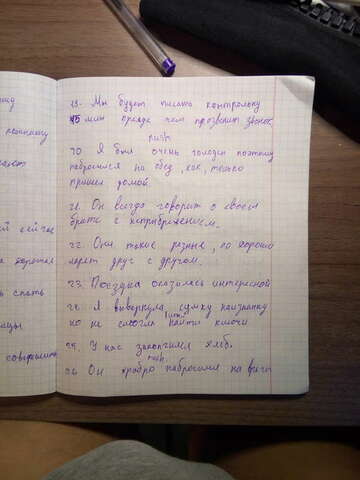 ший
решишу
19. Мы будет писать контрольку
45 мин прежде чем прозвенит звонок
rush
20 Я был очень голоден поэтому
набросился на обед, как только
пришел домой.
21. Он всегда говорит о своем
брате с непрыбрежением.
22. Они такие разные, но хорошо
ладят друг с другом.
23. Поездка оказалась интересной
24. Я вывернула сумку наизнанку
но не смогла найти ключи
25. У нас закончился хлеб.
rush
26 Он храбро набросился на врага
й сейчас
спать
совершить